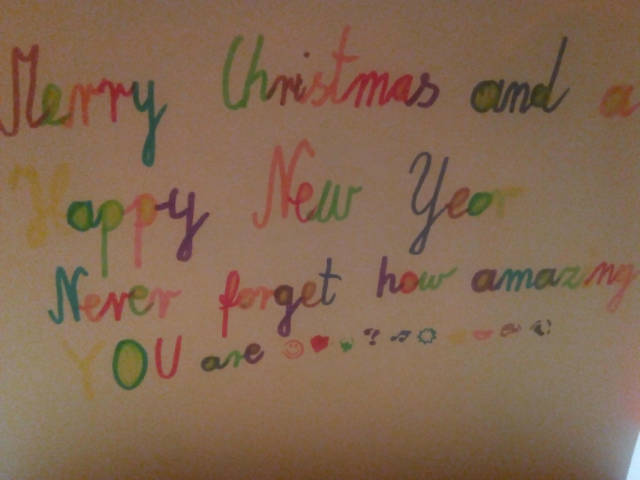 Merry Christmas and a
Happy New Year
Never forget how amazing
YOU are